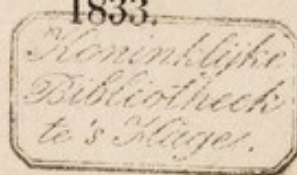 1833.
Koninklijke
Bibliotheek
te 's Hage.